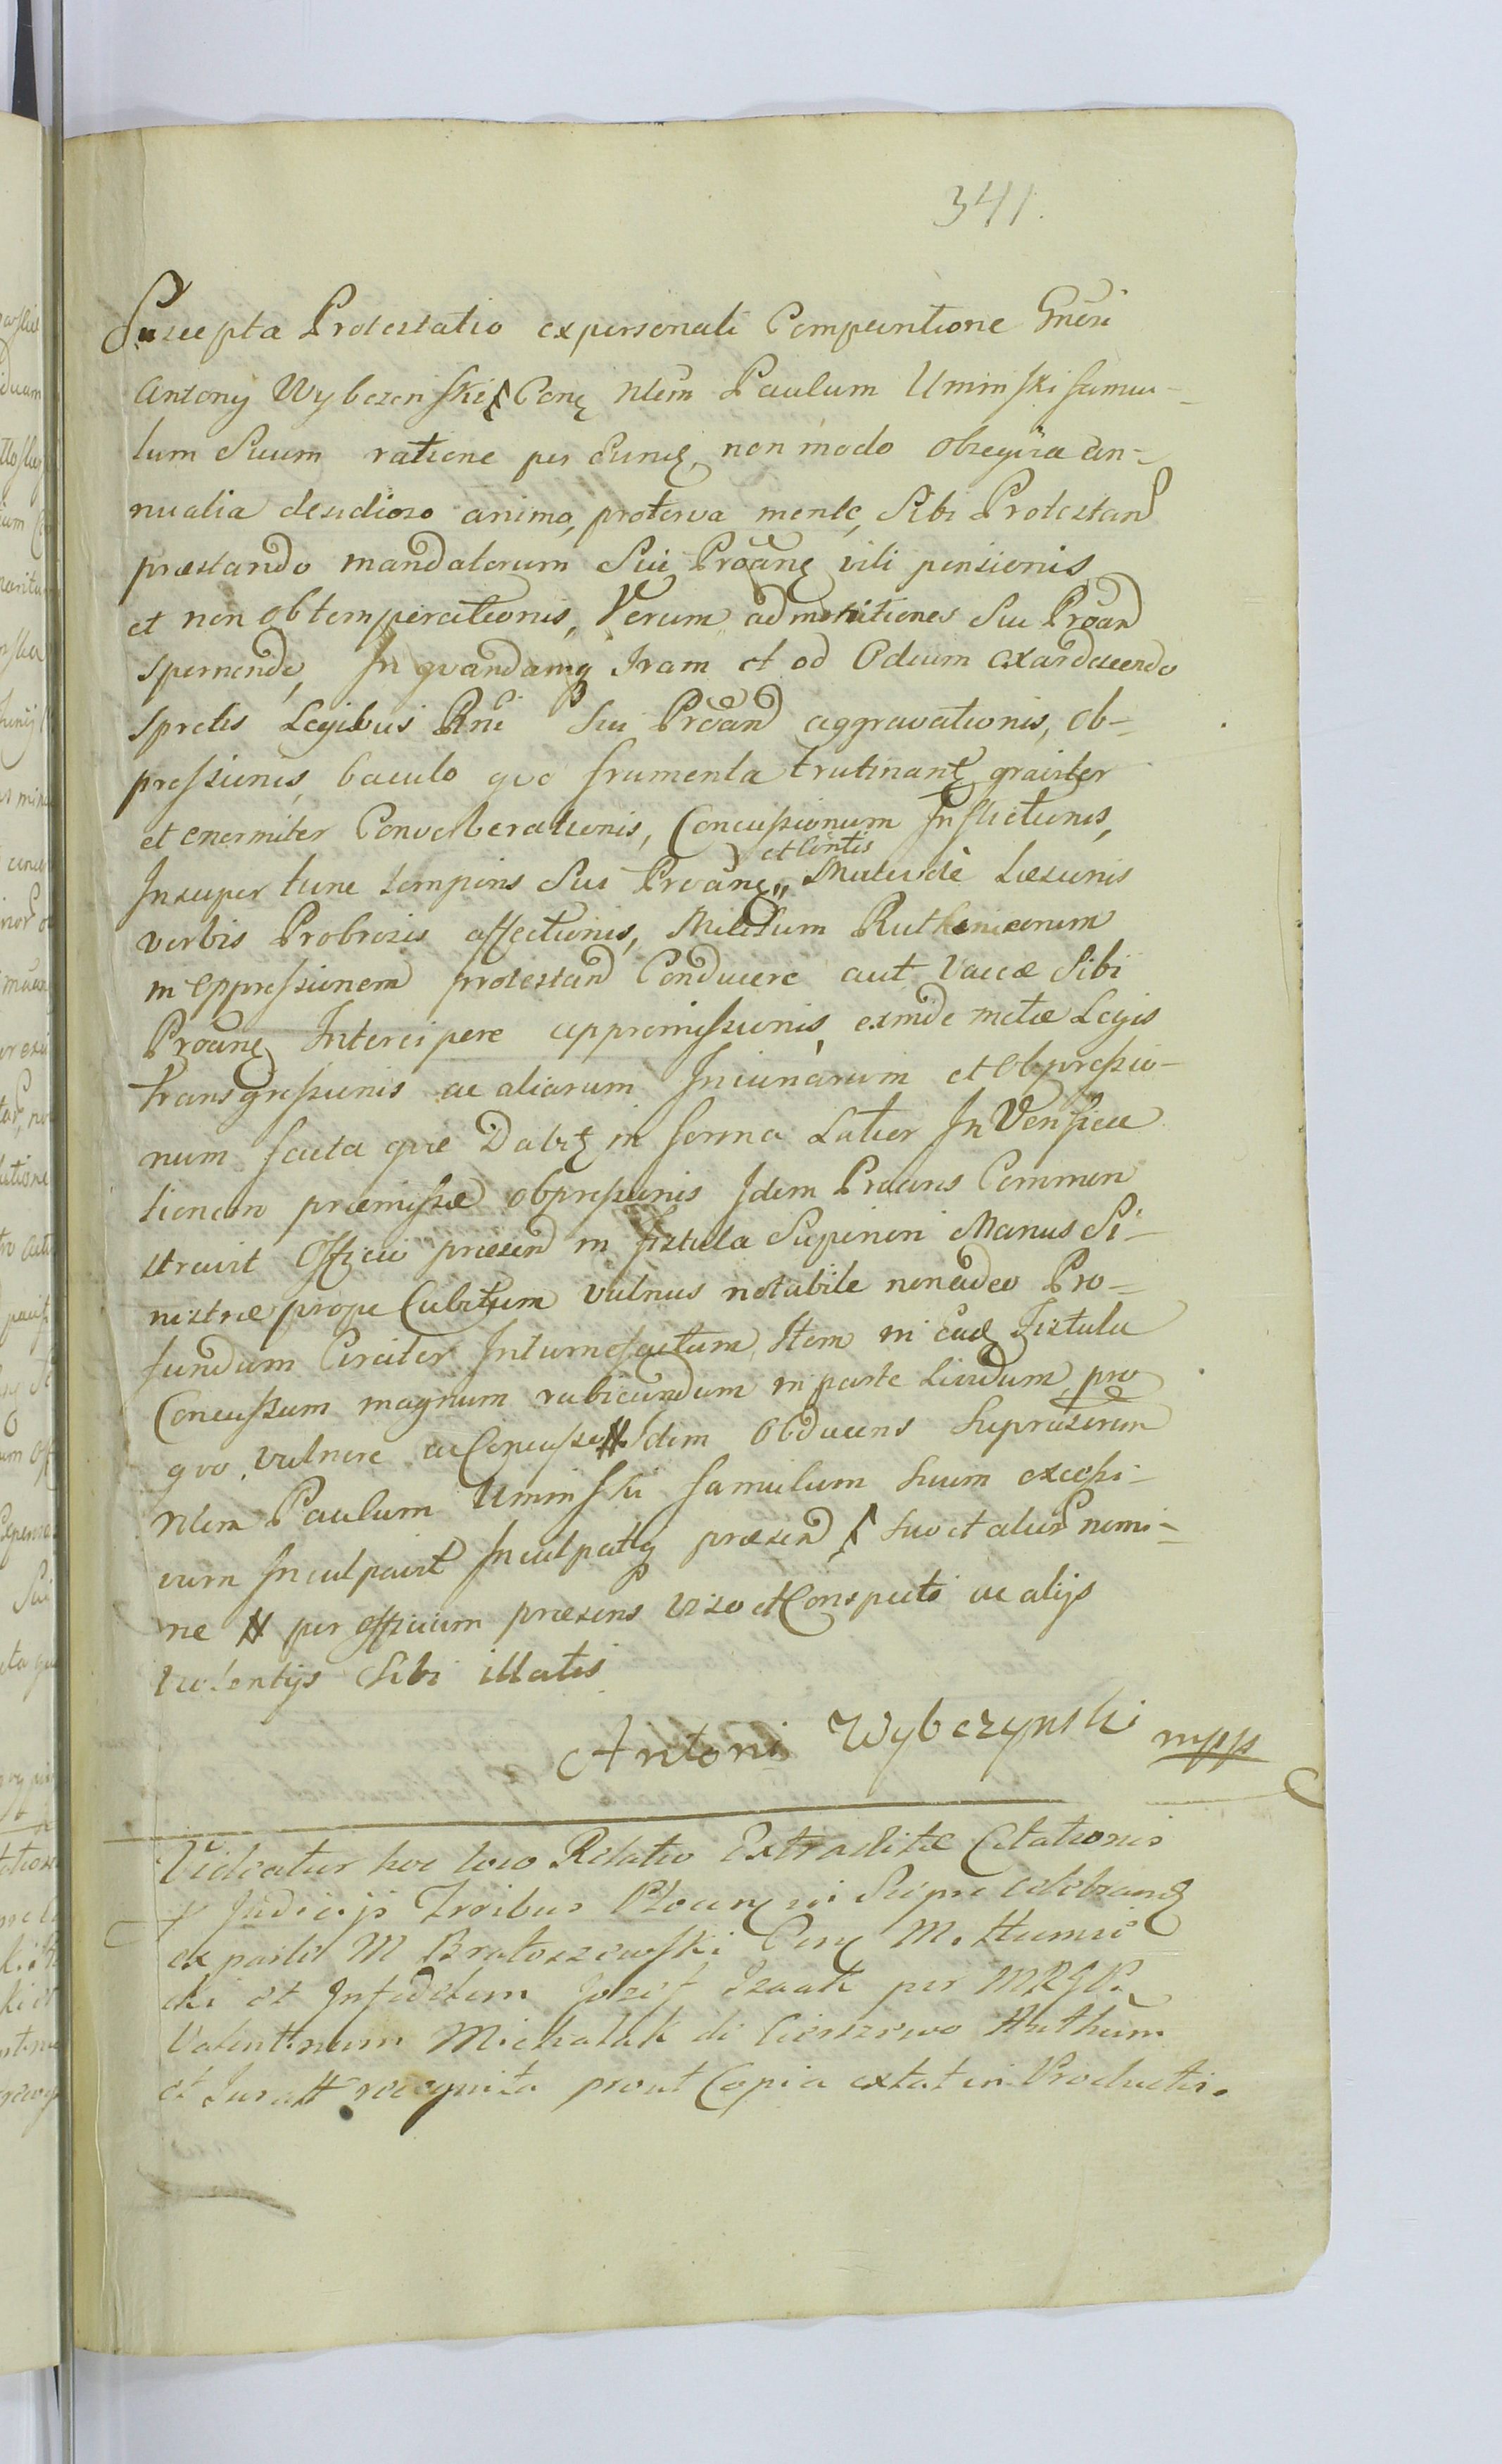 341.
Suscepta Protestatio ex personali Comparitione Gnēsi
Antony Wybczynski Conꝫ Nlem Paulum Uminski famu-
lum Suum ratione per Eunꝫ, non modo obsequia an-
nualia desidioso animo, proterva mente, Sibi Protestand
præstando mandatorum Sui Proānꝫ vili pensionis
et non obtemperationis, Verum admonitiones Sui Proān
spernendo, In qvandamq Iram et od Odium exardescendo
spretis Legibus Rni Sui Proān aggravationis, ob-
pressionis, baculo qvo frumenta trutinantꝫ graviter
et enormiter Converberationis, Concussionum Inflictionis,
et Contis
Insuper tunc temporis Sui Proānꝫ,, Læsionis
verbis Probrosis affectionis, Militum Ruthenicorum
in oppressionem protestand Conducere aut Vaccæ Sibi
Proānꝫ Intercipere appromissionis, exinde metæ Legis
transgressionis ac aliarum Iniuriarum et obpressio-
num facta qvæ Dabitꝫ in forma Latior In Verifica
tionem præmissæ obpressionis Idem Proans Commen
stravit Officio præsend in fistula Superiori Manus Si-
nistræ prope Cubitum vulnus notabile non adeo Pro-
fundum Circiter Intumefactum, Item in Eadꝫ Fistula
Concussum magnum rubicundum in parte Lividum, pro
qvo vulnere ac Concusso # Idem Obducens Suprascrum
Nlem Paulum Uminski famulum suum
vum Inculpavit Inculpatq præsend suo et nomi-
ne # per officium præsens viso et Conspecto ac alijs
violentijs Sibi illatis
Antoni Wybczynski mpp
Videatur hoc loco Relatio Extraditæ Citationis
Judicijs Trribus Plocenꝫ in Sierpc celebrandꝫ
ex parte M Bratoszewski Conꝫ M. Humie
cki et Infidelem Josef Izaak per MRGP.
Valentinum Michalak di Cieszewo Authum
et Juratt recognita prout Copia extat in Productis.